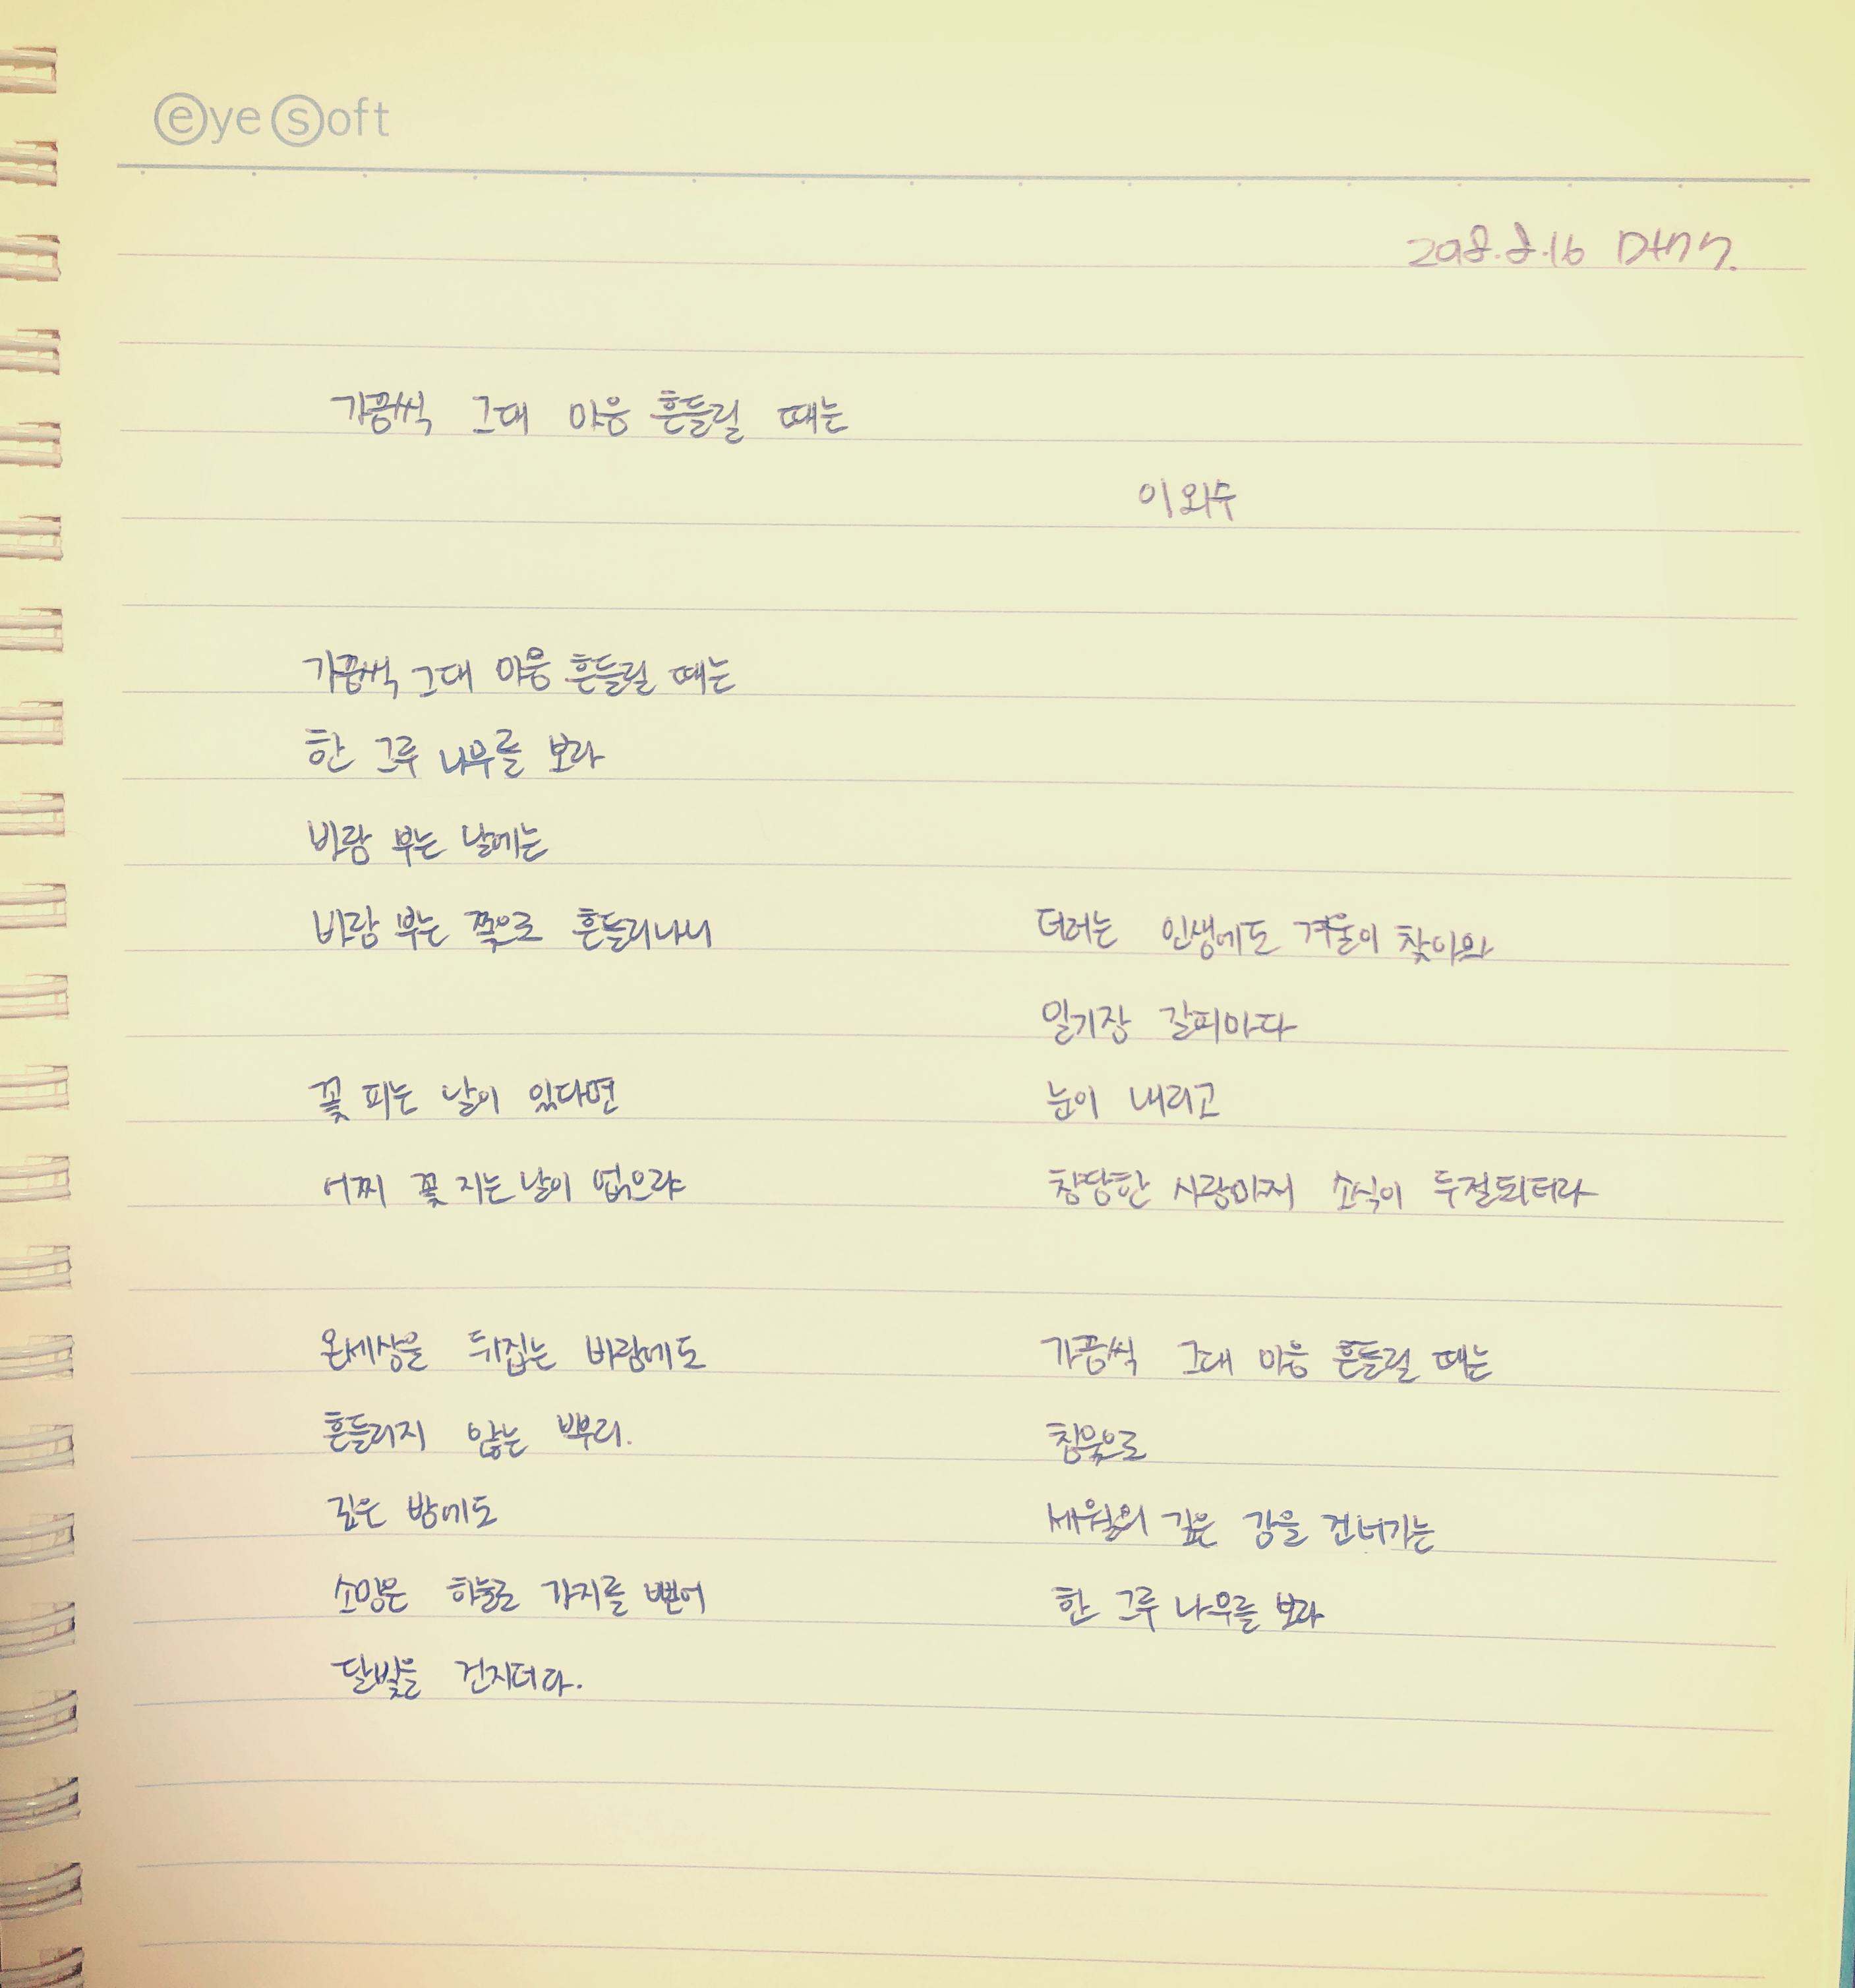 eyesoft
2018.8.16
가끔씩 그대 마음 흔들릴 때는
이외수
가끔씩 그대 마음 흔들릴 때는
한 그루 나무를 보라
바람 부는 날에는
바람 부는 쪽으로 흔들리나니
꽃 피는 날이 있다면
어찌 꽃 지는 날이 없으랴
온세상을 뒤집는 바람에도
흔들리지 않는 뿌리.
깊은 밤에도
소망은 하늘로 가지를 뻗어
달빛을 건지더라.
더러는 인생에도 겨울이 찾아와
일기장 갈피마다
눈이 내리고
참담한 사랑마저 소식이 두절되더라
가끔씩 그대 마음 흔들릴 때는
침묵으로
세월의 깊은 강을 건너가는
한 그루 나무를 보라